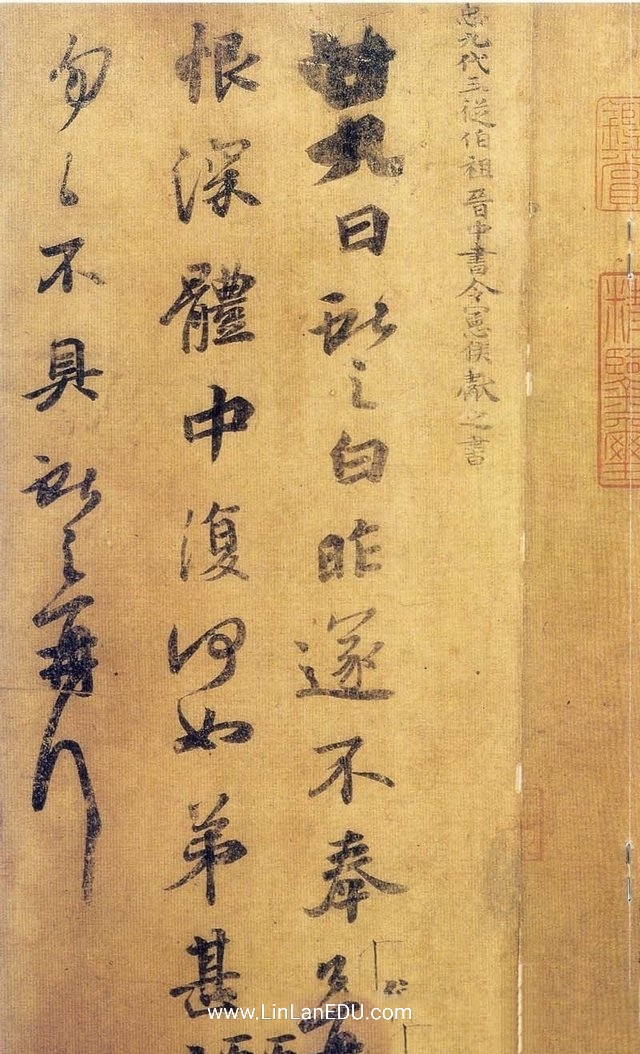 九代三從伯祖晉中書令憲侯獻之書
廿九日獻之白昨遂不奉
恨深體中復何如弟甚
匆〻不具獻之再拜
www.LinLanEDU.com